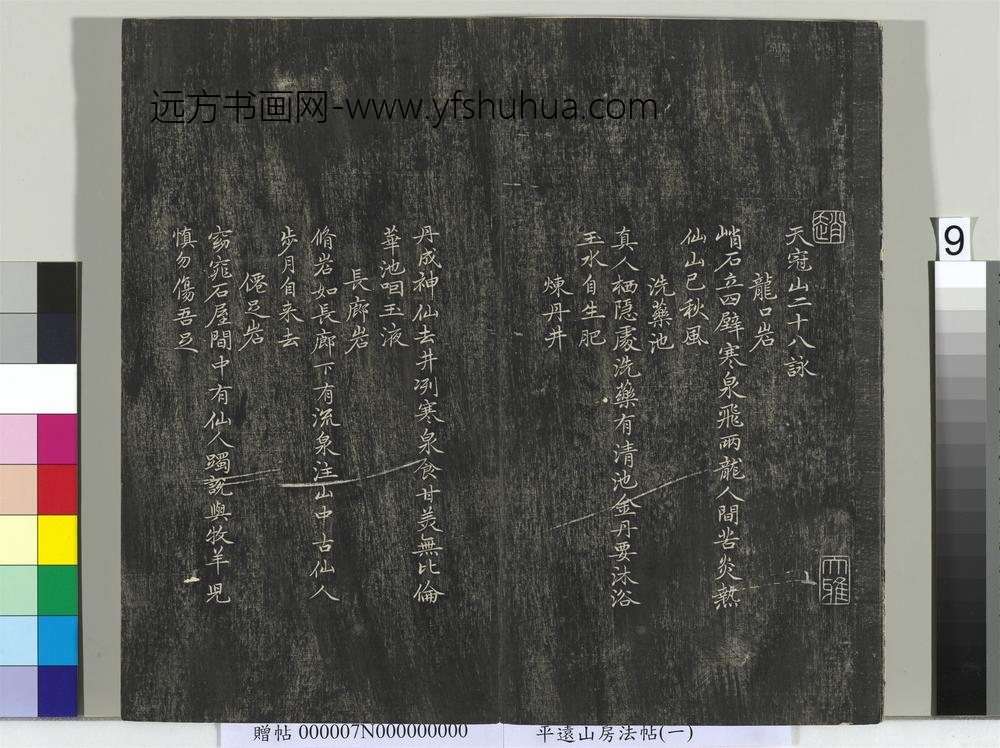 远方书画网-www.yfshuhua.com
趙
大雅
天冠山二十八詠
龍口岩
峭石立四壁寒泉飛兩龍人間苦炎熱
仙山已秋風
洗藥池
真人栖隱處洗藥有清池金丹要沐浴
玉水自生肥
煉丹井
丹成神仙去井冽寒泉食甘美無比倫
華池咽玉液
長廊岩
脩岩如長廊下有流泉注山中古仙人
步月自来去
僊足岩
窈窕石屋間中有仙人躅說與牧羊兒
慎勿傷吾足
9
贈帖 000007N000000000
平遠山房法帖(一)